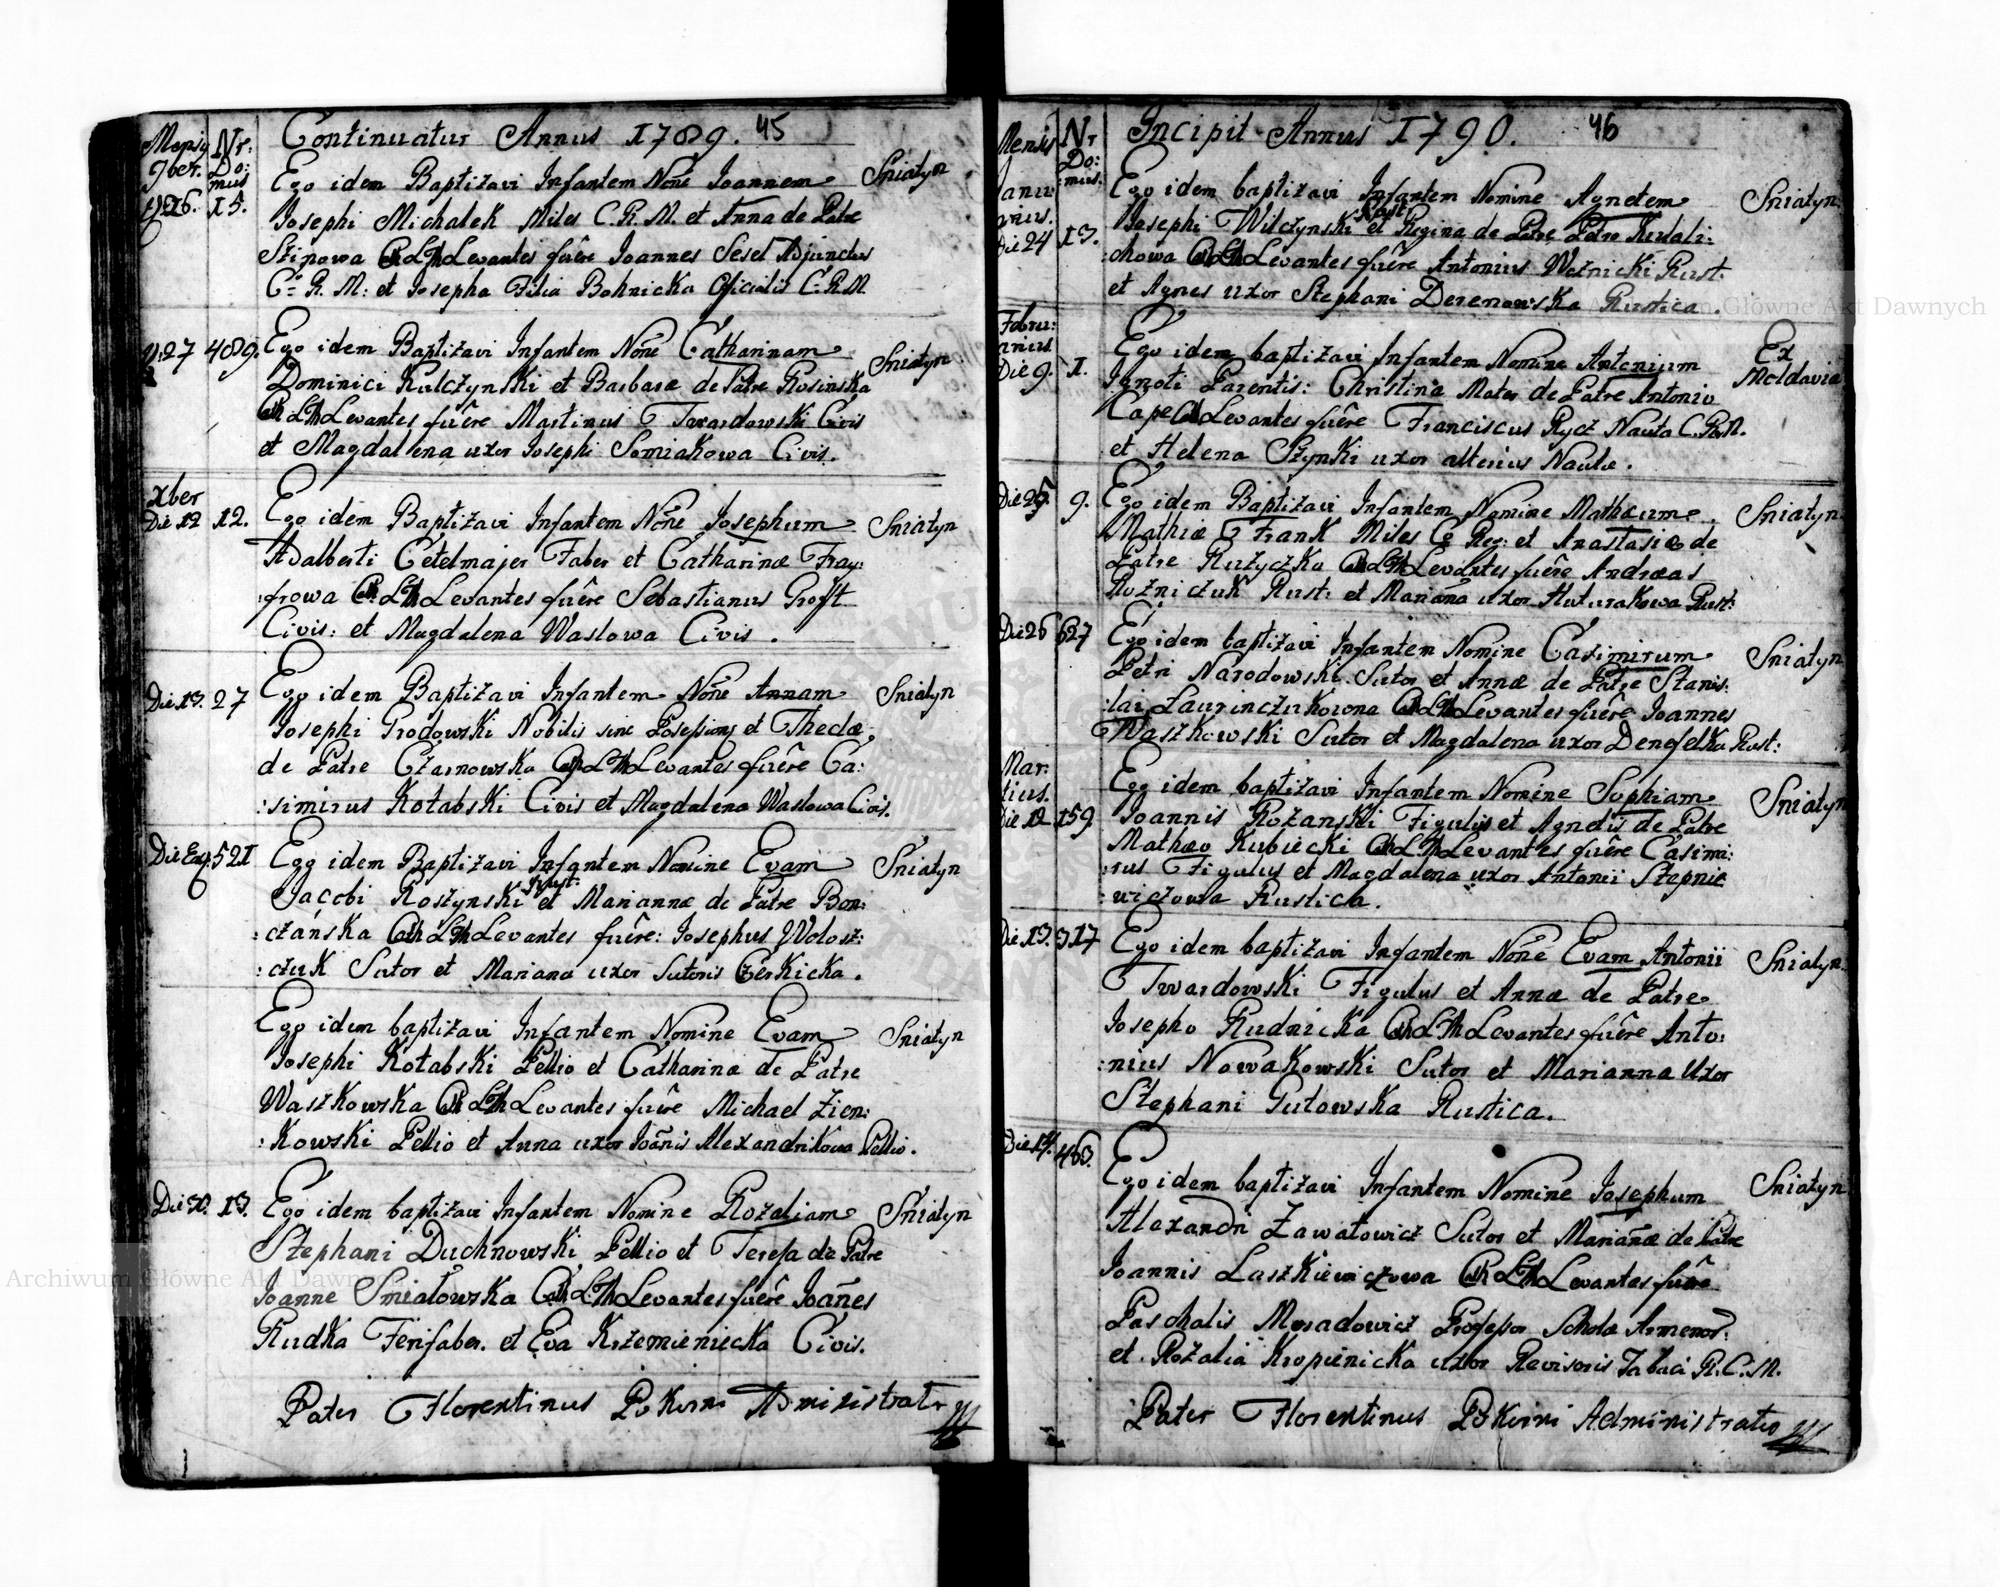 Continuatur Annus 1789. 45
Mensis
9ber.
Nr:
Do:
mus
26. 15.
Ego idem Baptizavi Infantem None Joannem Sniatyn
Josephi Michalek Miles C.R.M. et Anna de Patre
Stipowa Levantes fuêre Joannes Sesel Adjunctus
C: R. M: et Josepha Filia Bohnicka Oficialis C.R.M.
27 489.
Ego idem Baptizavi Infantem None Catharinam Sniatyn
Dominici Kulczynski et Barbaræ de Patre Rosinska
Levantes fuêre Martinus Twardowski Civis
et Magdallena uxor Josephi Somiakowa Civis.
Xber
Die 12 12.
Ego idem Baptizavi Infantem None Josephum Sniatyn
Adalberti Cetelmajer Faber et Catharinæ Fray:
:frowa Levantes fuêre Sebastianus Groft
Civis: et Magdalena Waslowa Civis.
Die 13. 27
Ego idem Baptizavi Infantem None Annam Sniatyn
Josephi Grodowski Nobilis sine Posessiony et Theclæ
de Patre Czarnowska Levantes fuêre Ca:
:simirus Kotabski Civis et Magdalena Waslowa Civis.
521
Ego idem Baptizavi Infantem Nomine Evam Sniatyn
Jacobi Roszynski Rust: et Mariannæ de Patre Bon:
:czánska Levantes fuêre: Josephus Wolosz:
:czuk Sutor et Mariana uxor Sutoris Czerkicka.
Ego idem baptizavi Infantem Nomine Evam Sniatyn
Josephi Kotabski Pellio et Catharinæ de Patre
Waszkowska Levantes fuêre Michael Zien:
:kowski Pellio et Anna uxor Joanis Alexandrikowa Pellio.
Die 30. 13.
Ego idem baptizavi Infantem Nomine Rozaliam Sniatyn
Stephani Duchnowski Pellio et Teresa de Patre
Joanne Smiatowska Levantes fuêre Joañes
Rudka Ferifaber. et Eva Krzemieniecka Civis.
Pater Florentinus Pokorni Administrator
Incipit Annus 1790. 46
Mensis
Janu
arius.
Die 24
Nr
Do:
mus:
13.
Ego idem baptizavi Infantem Nomine Agnetem Sniatyn
Josephi Wilczynski Rust: et Regina de Patre Petro Kudali:
chowa Levantes fuêre Antonius Woznicki Rust:
et Agnes uxor Stephani Derenowska Rustica.
Febru:
arius.
Die 9. 1.
Ego idem baptizavi Infantem Nomine Antonium Ex Moldavia
Ignoti Parentis: Christina Mater de Patre Antonio
Cape Levantes fuêre Franciscus Rycz Nauta C.R.M.
et Helena Szynki uxor alterius Nautæ.
Die 25. 9.
Ego idem Baptizavi Infantem Nomine Mathæum Sniatyn
Mathiæ Frank Miles C Reg: et Anastasiæ de
Patre Ruzyczka Levantes fuêre Andreas
Rozniczuk Rust: et Mariana uxor Huturakowa Rust:
Die 26 627
Ego idem baptizavi Infantem Nomine Casimirum Sniatyn
Petri Narodowski Sutor et Annæ de Patre Stanis:
:lai Laurinczukowna Levantes fuêre Joannes
Waszkowski Sutor et Magdalena uxor Denefelka Rust:
Mar:
tius.
Die 12 159.
Ego idem baptizavi Infantem Nomine Sophiam Sniatyn
Joannis Rozanski Figulus et Agnetis de Patre
Mathæo Kubiecki Levantes fuêre Casimi:
:rus Figulus et Magdalena uxor Antonii Stepnie
:wiczowa Rustica.
Die 13. 317
Ego idem baptizavi Infantem None Evam Antonii Sniatyn
Twardowski Figulus et Annæ de Patre
Josepho Rudnicka Levantes fuêre Anto:
:nius Nowakowski Sutor et Marianna Uxor
Stephani Gutowska Rustica.
Die 14. 463.
Ego idem baptizavi Infantem Nomine Josephum Sniatyn
Alexandri Zawatowicz Sutor et Marianæ de Patre
Joannis Laszkiewiczowa Levantes fuêre
Paschalis Moradowicz Professor Scholæ Armenor:
et Rozalia Kropienicka uxor Revisoris Tabaci R.C.M.
Pater Florentinus Pokorni Administrator
Archiwum Główne Akt Dawnych
Archiwum Główne Akt Dawnych